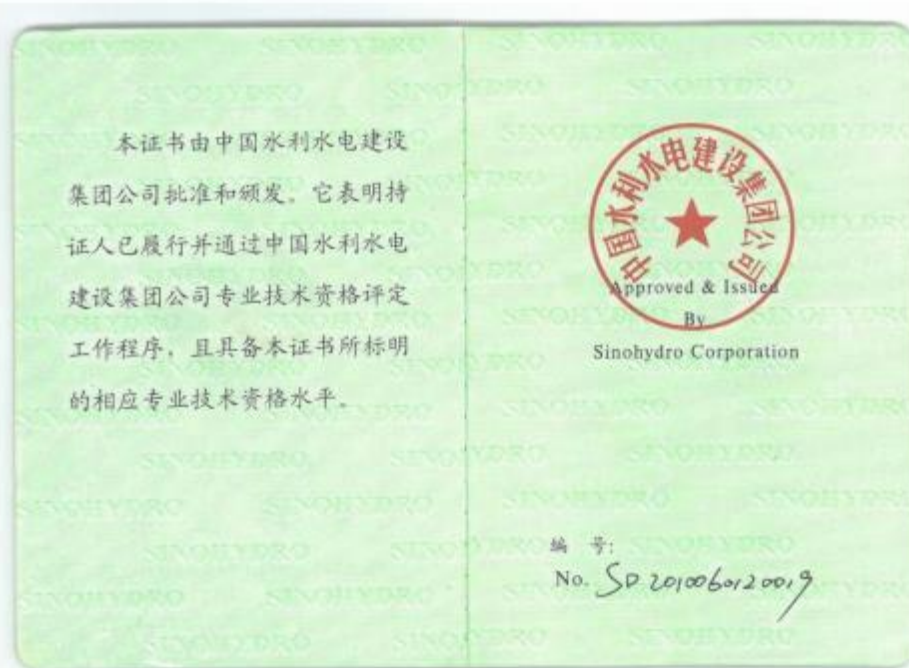 本证书由中国水利水电建设
集团公司批准和颁发。它表明持
证人已履行并通过中国水利水电
建设集团公司专业技术资格评定
工作程序，且具备本证书所标明
的相应专业技术资格水平。
中国水利水电建设集团公司
Approved & Issued
By
Sinohydro Corporation
编 号:
No. SD 2010060120019
SINOHYDRO